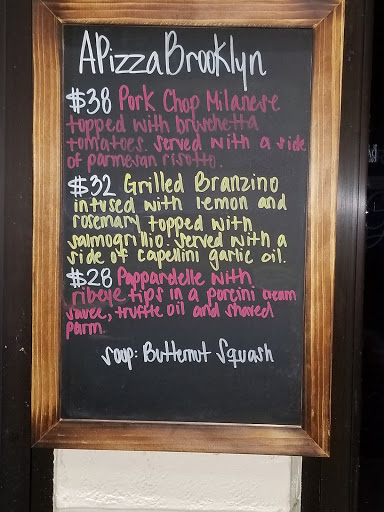 APizzaBrooklyn
$38 Pork Chop Milanese
topped with bruschetta
tomatoes. served with a side
of parmesan risotto.
$32 Grilled Branzino
infused with lemon and
rosemary topped with
salmogrillio. served with a
side of capellini garlic oil.
$28 Pappardelle with
ribeye tips in a porcini cream
sauce, truffle oil and shaved
parm.
soup: Butternut Squash